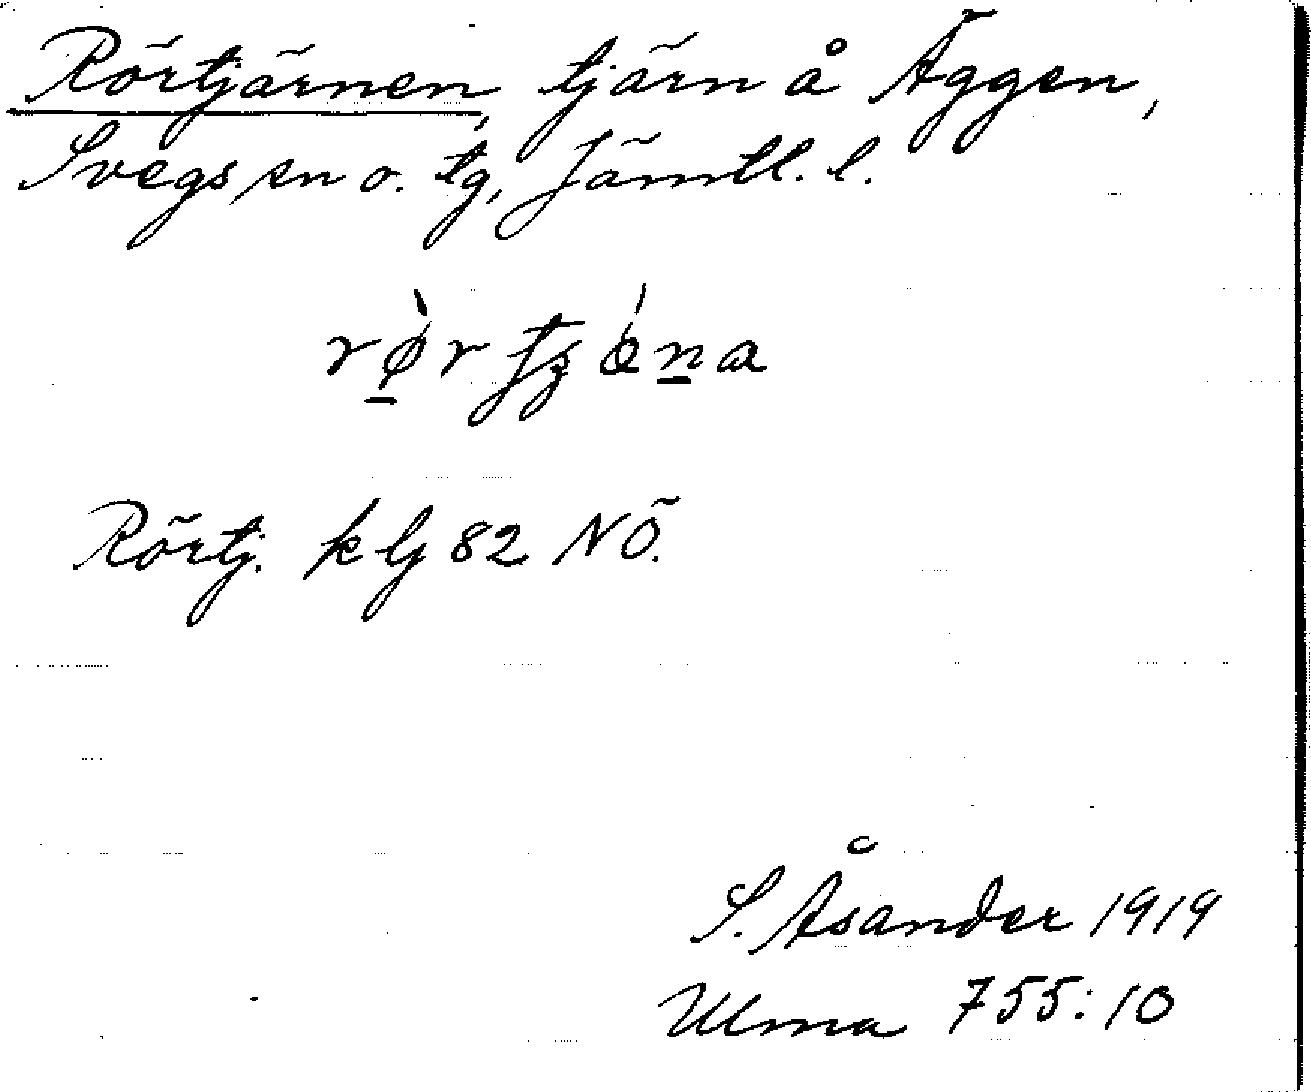 Rörtjärnen, tjärn å Äggen,
Svegs sn o. tg, Jämtl. l.
Rörtj. k bj 82 NÖ.
S. Åsander 1919
Ulma 755:10